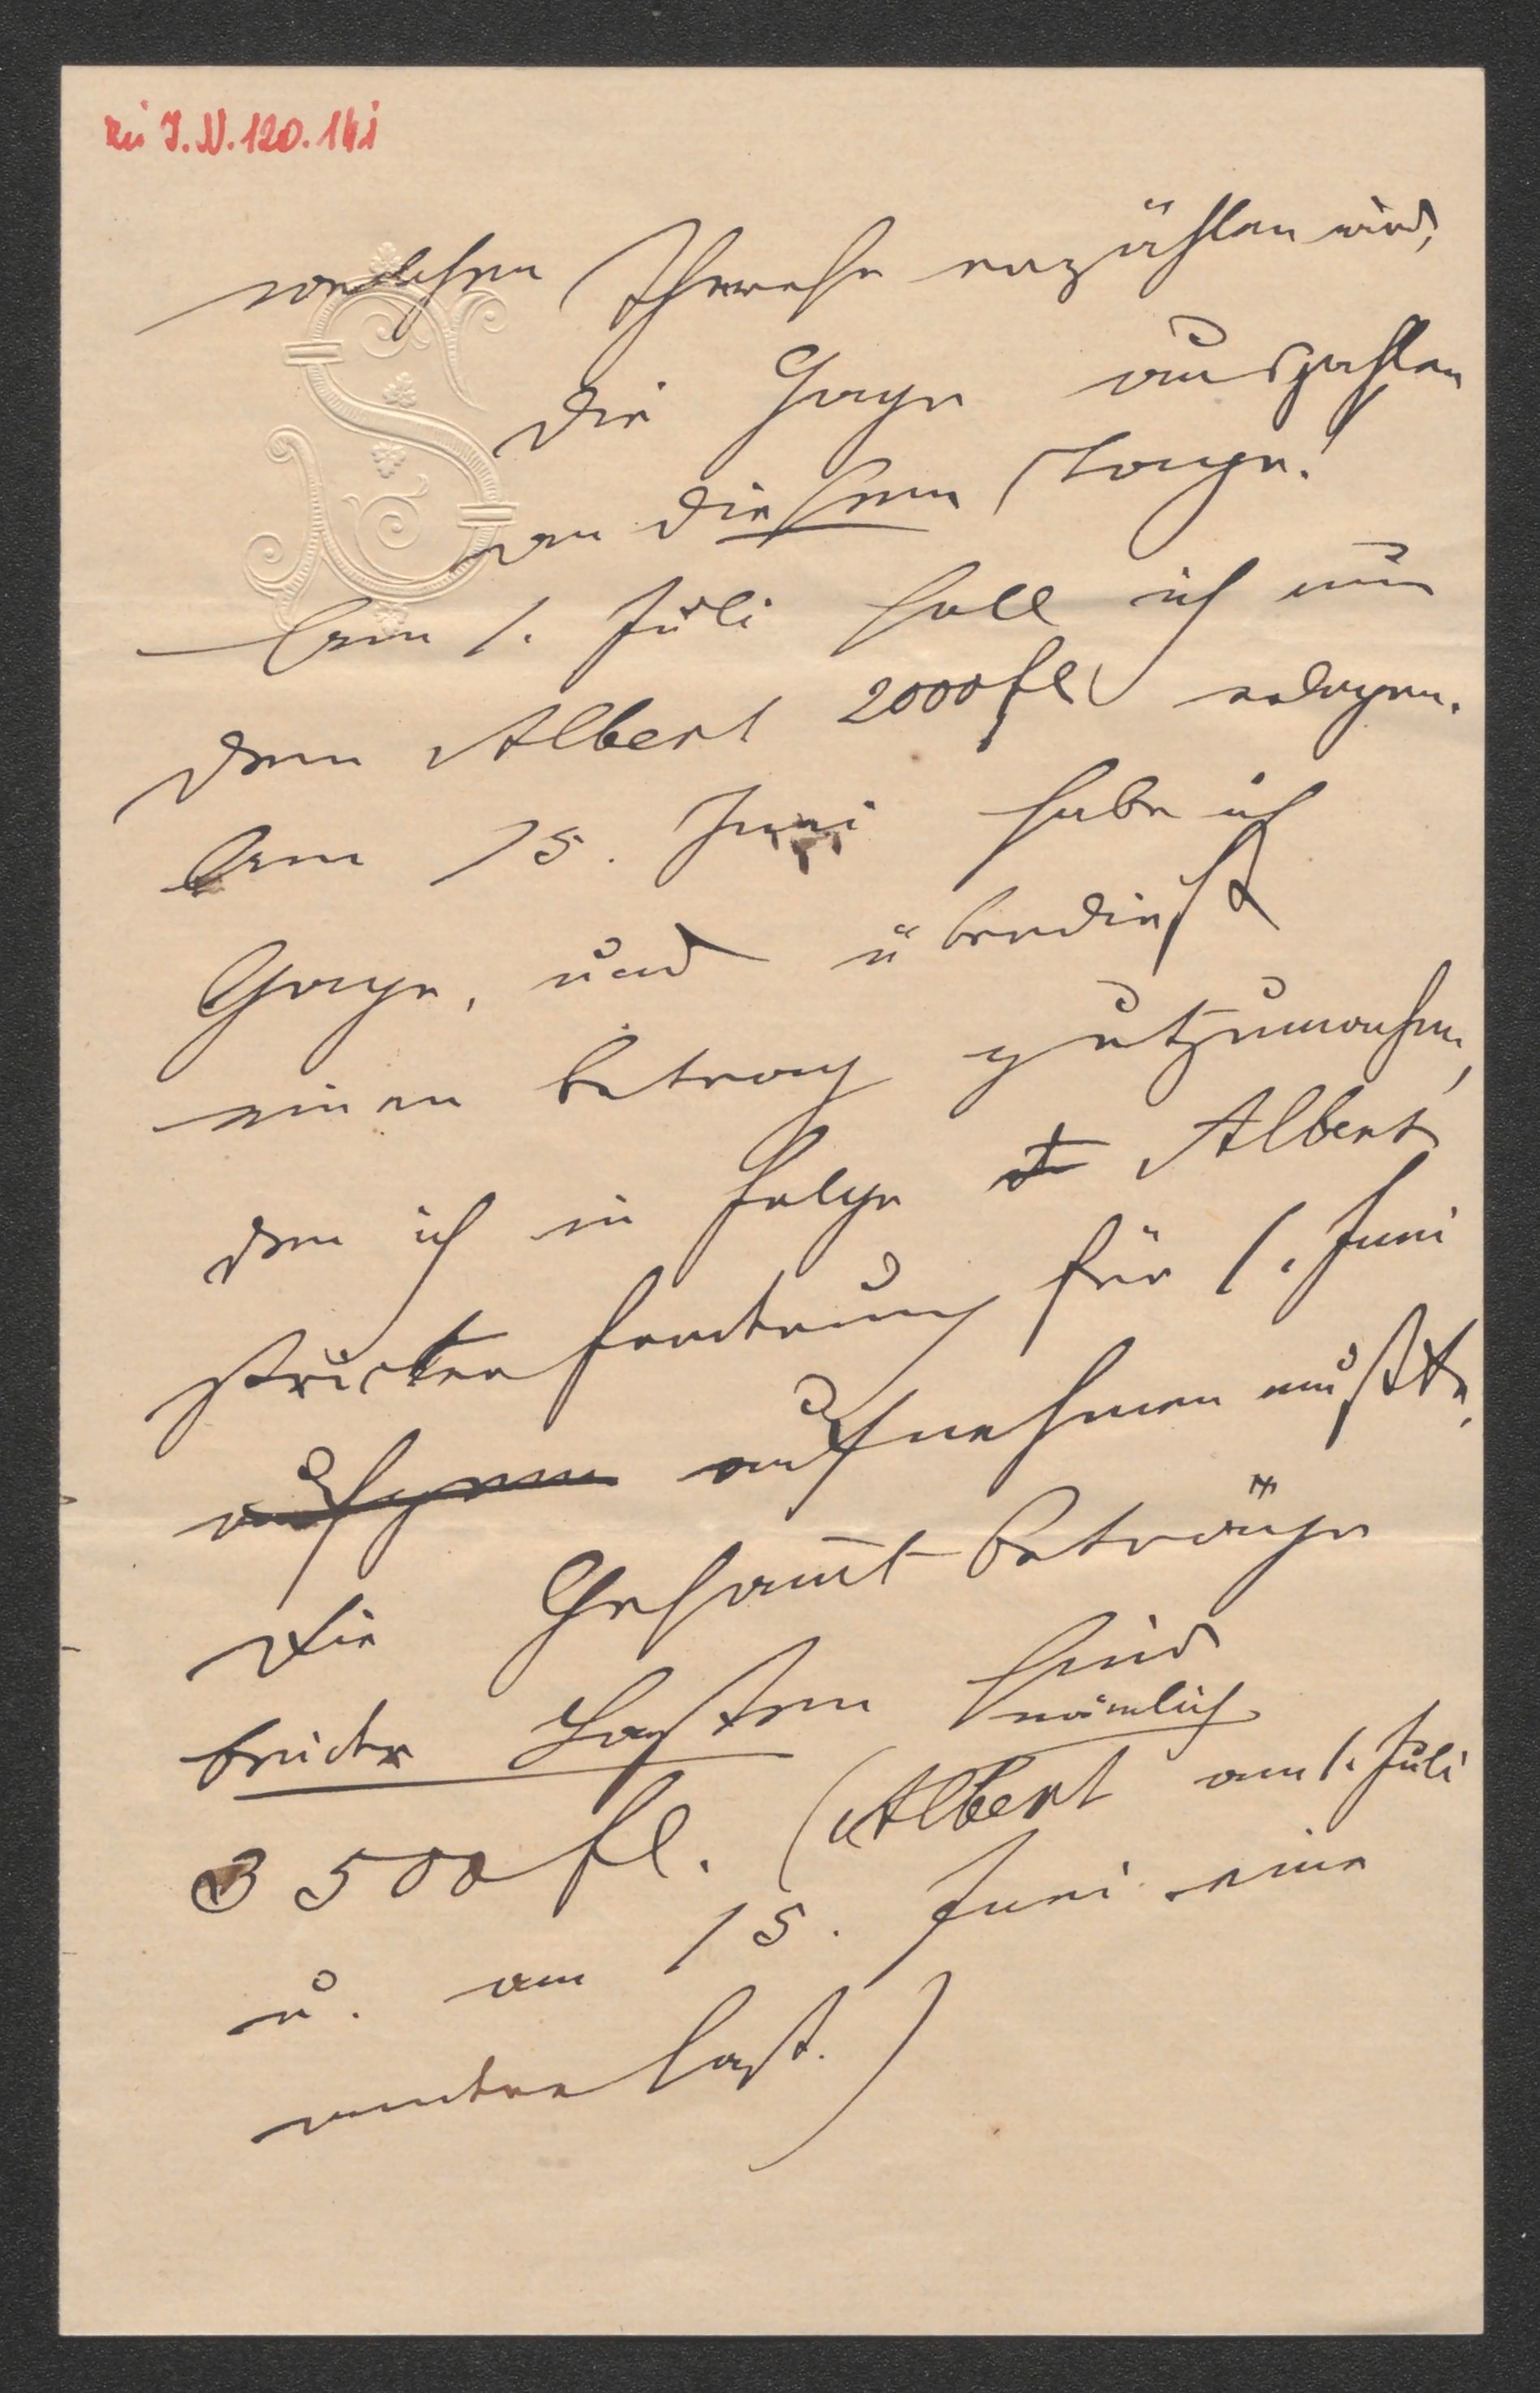 zu I.N. 120.141
welchen Therese erzählen wird,
die Gage auszahlen
an diesem Tage!
Am 1. Juli soll ich nun
dem Albert 2000 fl erlegen.
Am 15. Juni habe ich
Gage, und überdießt
einen Betrag gutzumachen,
den ich in Folge d Albert
strickter Forderung für 1. Juni
aufgenm aufnehmen mußte.
Die Gesammt-Beträge
beider Lasten sind
nämlich
3500 fl. (Albert am 1. Juli
u. am 15. Juni eine
andere Last.)